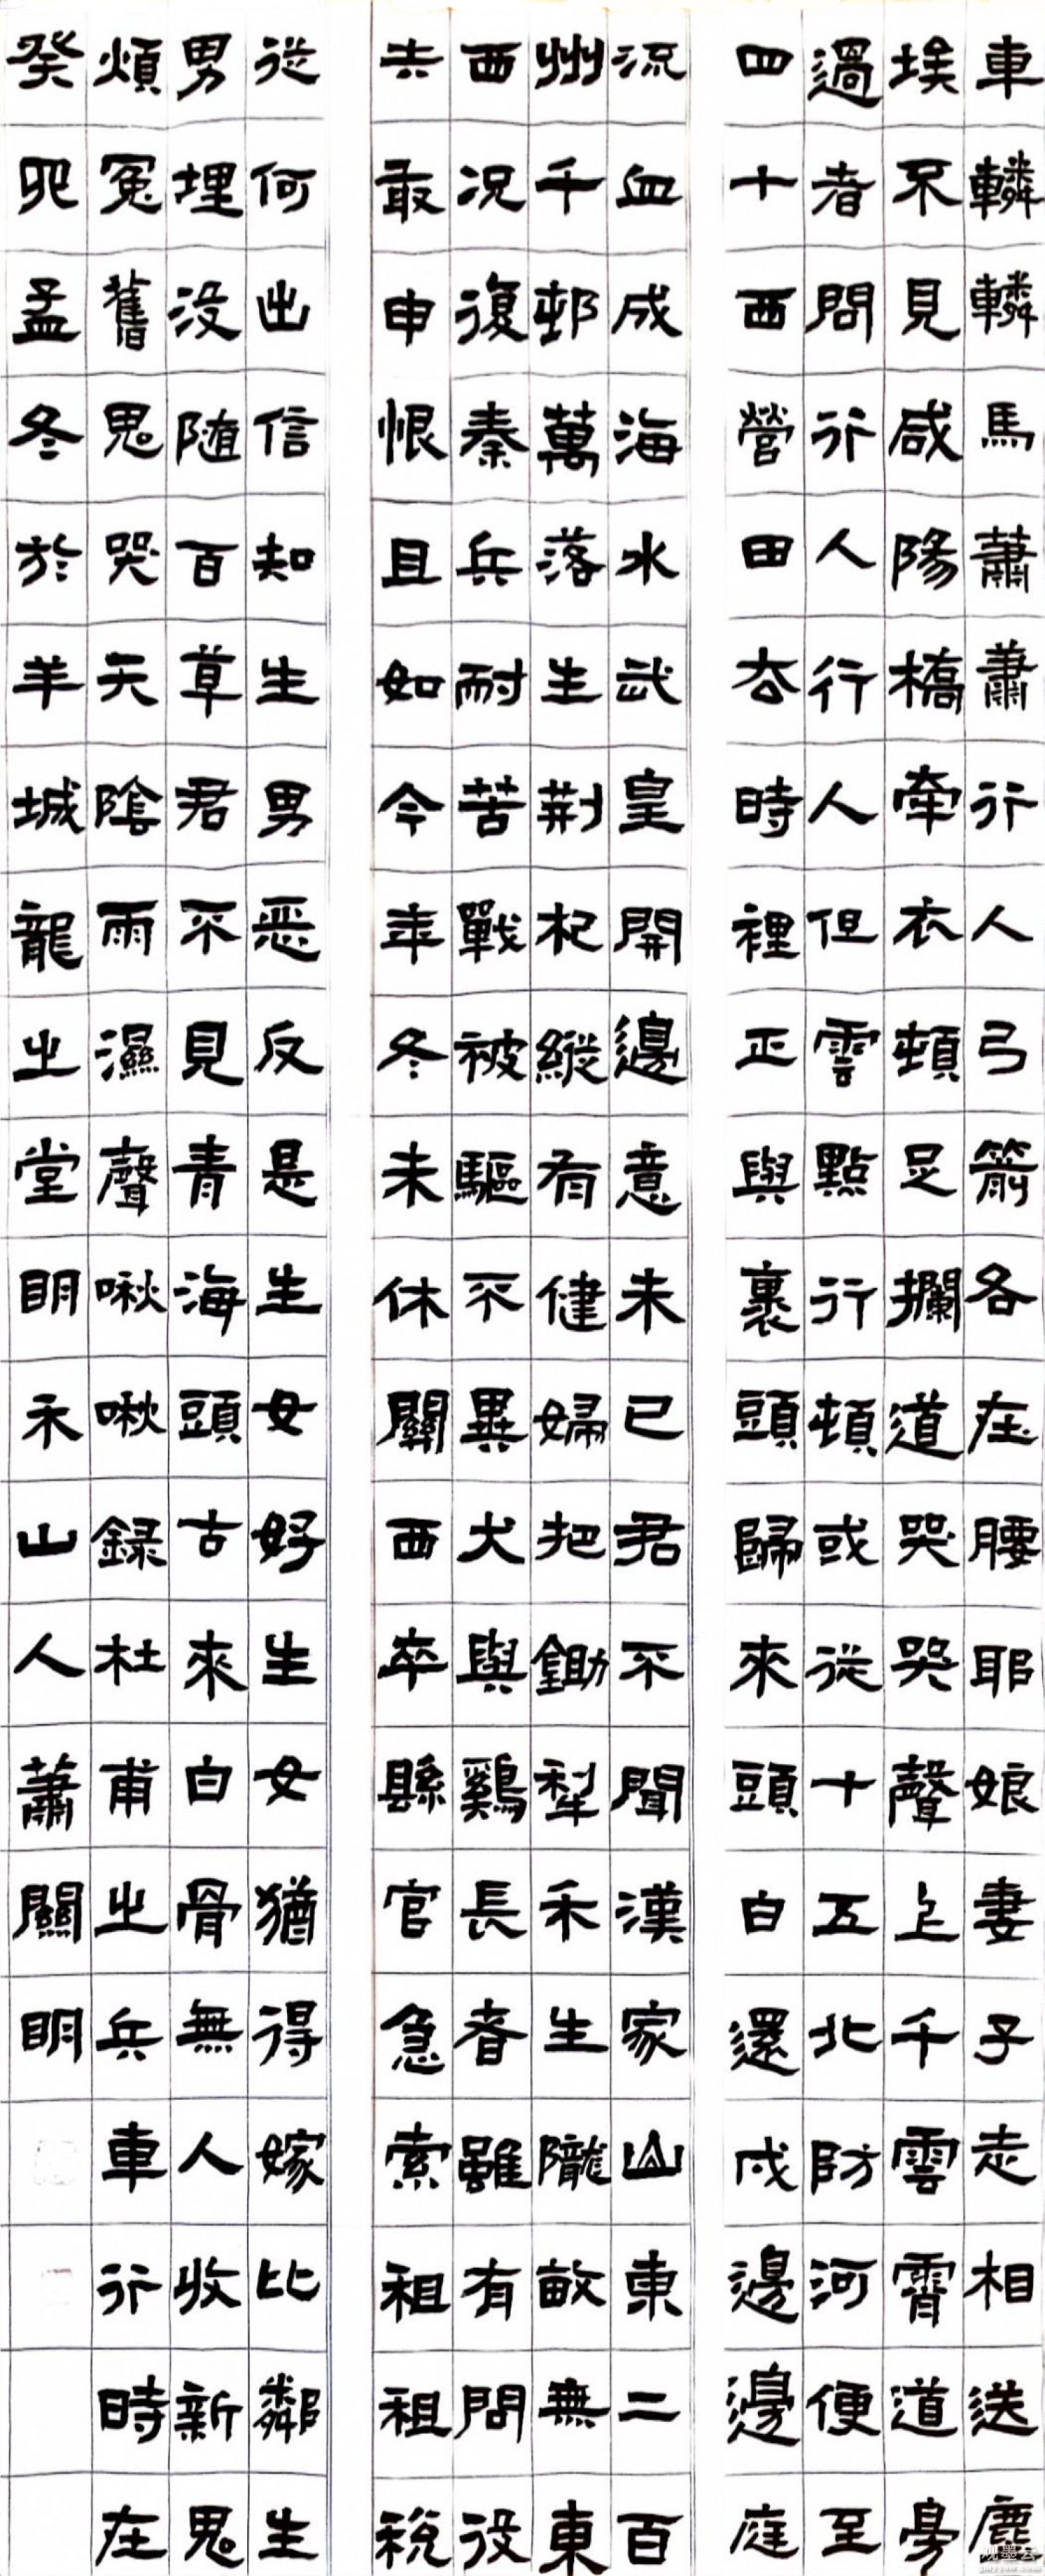 車轔轔馬蕭蕭行人弓箭各在腰耶娘妻子走相送塵
埃不見咸陽橋牽衣頓足攔道哭哭聲上千雲霄道旁
過者問行人行人但雲點行頓或從十五北防河便至
四十西營田去時裡正與裹頭歸來頭白還戍邊邊庭
流血成海水武皇開邊意未已君不聞漢家山東二百
州千邨萬落生荆杞縱有健婦把鋤犁禾生隴畝無東
西况復秦兵耐苦戰被驅不異犬與鷄長者雖有問役
夫敢申恨且如今年冬未休關西卒縣官急索租租税
從何出信知生男恶反是生女好生女猶得嫁比鄰生
男埋没随百草君不見青海頭古來白骨無人收新鬼
煩冤舊鬼哭天陰雨濕聲啾啾録杜甫之兵車行時在
癸卯孟冬於羊城龍之堂明禾山人蕭關明